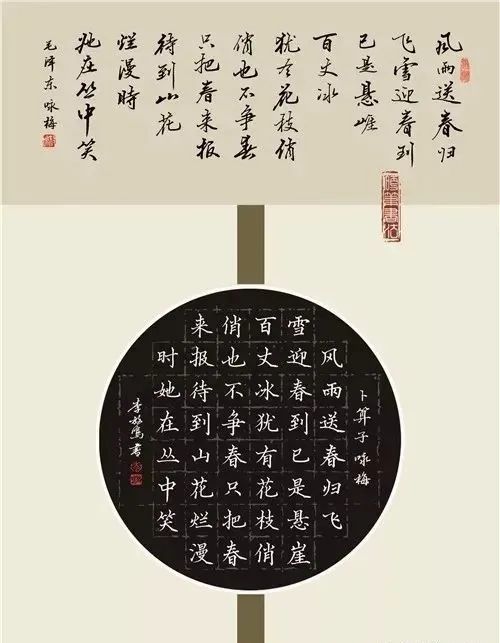 风雨送春归
飞雪迎春到
已是悬崖
百丈冰
犹有花枝俏
俏也不争春
只把春来报
待到山花
烂漫時
她在丛中笑
毛泽东 咏梅
卜算子 咏梅
风雨送春归飞
雪迎春到已是悬崖
百丈冰犹有花枝俏
俏也不争春只把春
来报待到山花烂漫
时她在丛中笑
李放鸣书